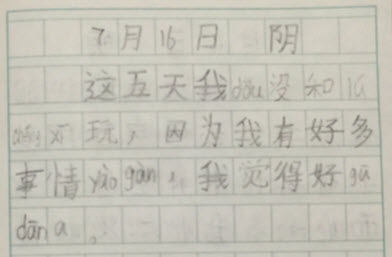 7月16日 阴
这五天我dōu没和
玩，因为我有好多
事情yào gàn，我觉得好gū
dān a。